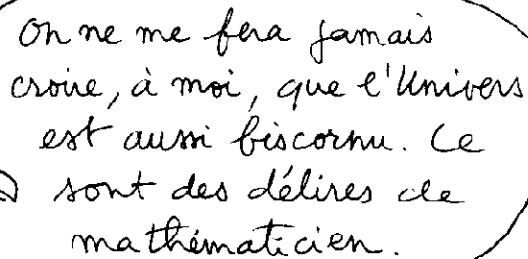 On ne me fera jamais
croire, à moi, que l'Univers
est aussi biscornu. Ce
sont des délires de
mathématicien.